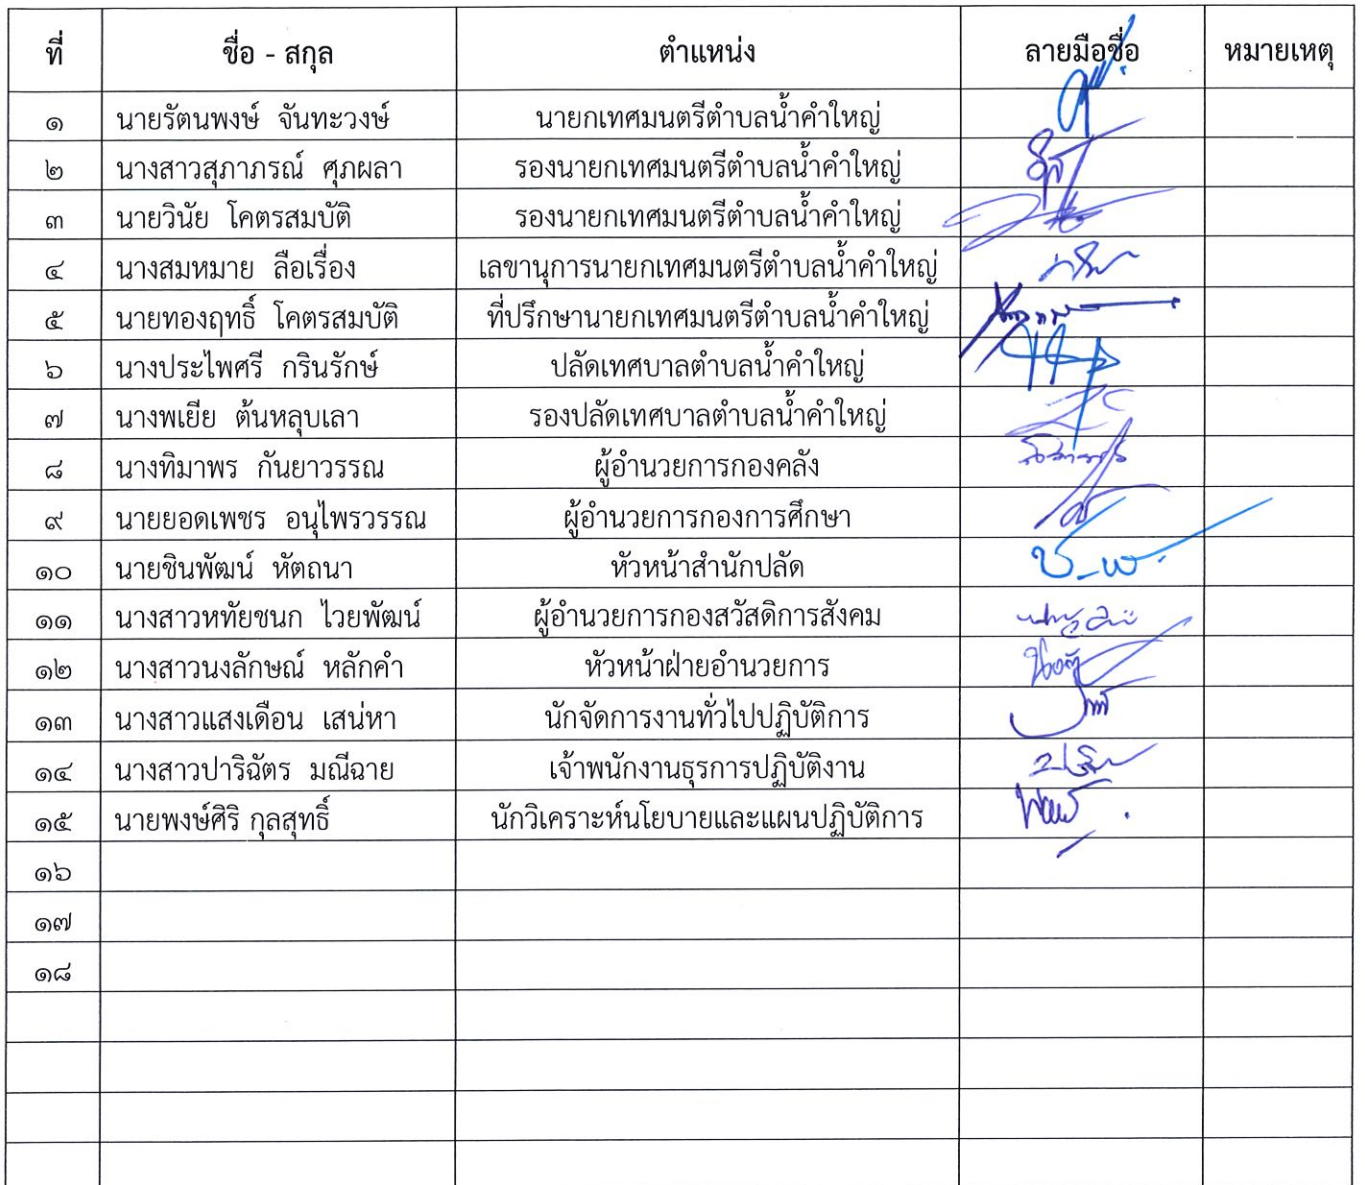 ที่ ชื่อ - สกุล ตำแหน่ง ลายมือชื่อ หมายเหตุ
๑ นายรัตนพงษ์ จันทะวงษ์ นายกเทศมนตรีตำบลน้ำคำใหญ่
๒ นางสาวสุภาภรณ์ ศุภผลา รองนายกเทศมนตรีตำบลน้ำคำใหญ่
๓ นายวินัย โคตรสมบัติ รองนายกเทศมนตรีตำบลน้ำคำใหญ่
๔ นางสมหมาย ลือเรื่อง เลขานุการนายกเทศมนตรีตำบลน้ำคำใหญ่
๕ นายทองฤทธิ์ โคตรสมบัติ ที่ปรึกษานายกเทศมนตรีตำบลน้ำคำใหญ่
๖ นางประไพศรี กรินรักษ์ ปลัดเทศบาลตำบลน้ำคำใหญ่
๗ นางพเยีย ต้นหลุบเลา รองปลัดเทศบาลตำบลน้ำคำใหญ่
๘ นางทิมาพร กันยาวรรณ ผู้อำนวยการกองคลัง
๙ นายยอดเพชร อนุไพรวรรณ ผู้อำนวยการกองการศึกษา
๑๐ นายชินพัฒน์ หัตถนา หัวหน้าสำนักปลัด
๑๑ นางสาวหทัยชนก ไวยพัฒน์ ผู้อำนวยการกองสวัสดิการสังคม
๑๒ นางสาวนงลักษณ์ หลักคำ หัวหน้าฝ่ายอำนวยการ
๑๓ นางสาวแสงเดือน เสน่หา นักจัดการงานทั่วไปปฏิบัติการ
๑๔ นางสาวปาริฉัตร มณีฉาย เจ้าพนักงานธุรการปฏิบัติงาน
๑๕ นายพงษ์ศิริ กุลสุทธิ์ นักวิเคราะห์นโยบายและแผนปฏิบัติการ
๑๖
๑๗
๑๘